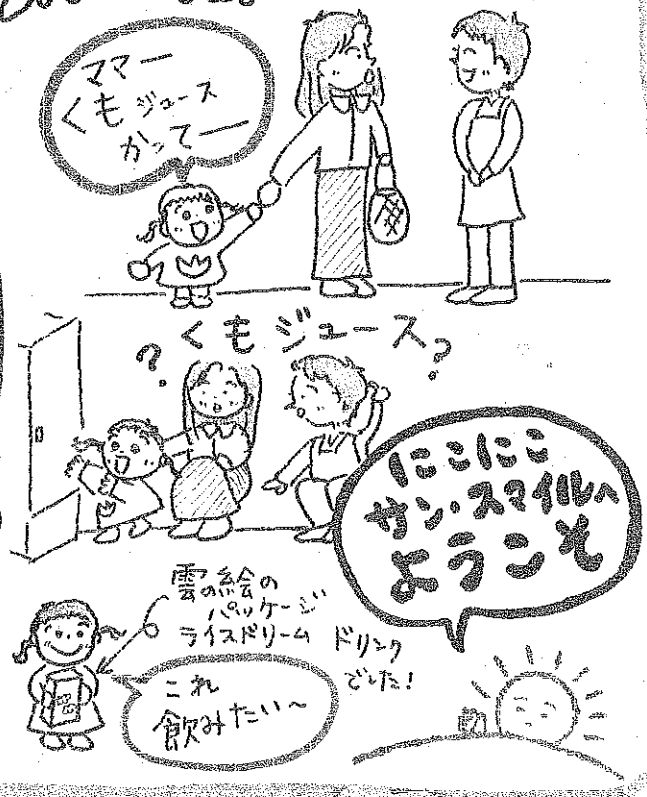 ママー
くもジュース
かってー
?くもジュース?
にこにこ
サン・スマイルへ
ようこそ
雲の絵の
パッケージ
ライスドリーム ドリンク
でした!
これ
飲みたい〜